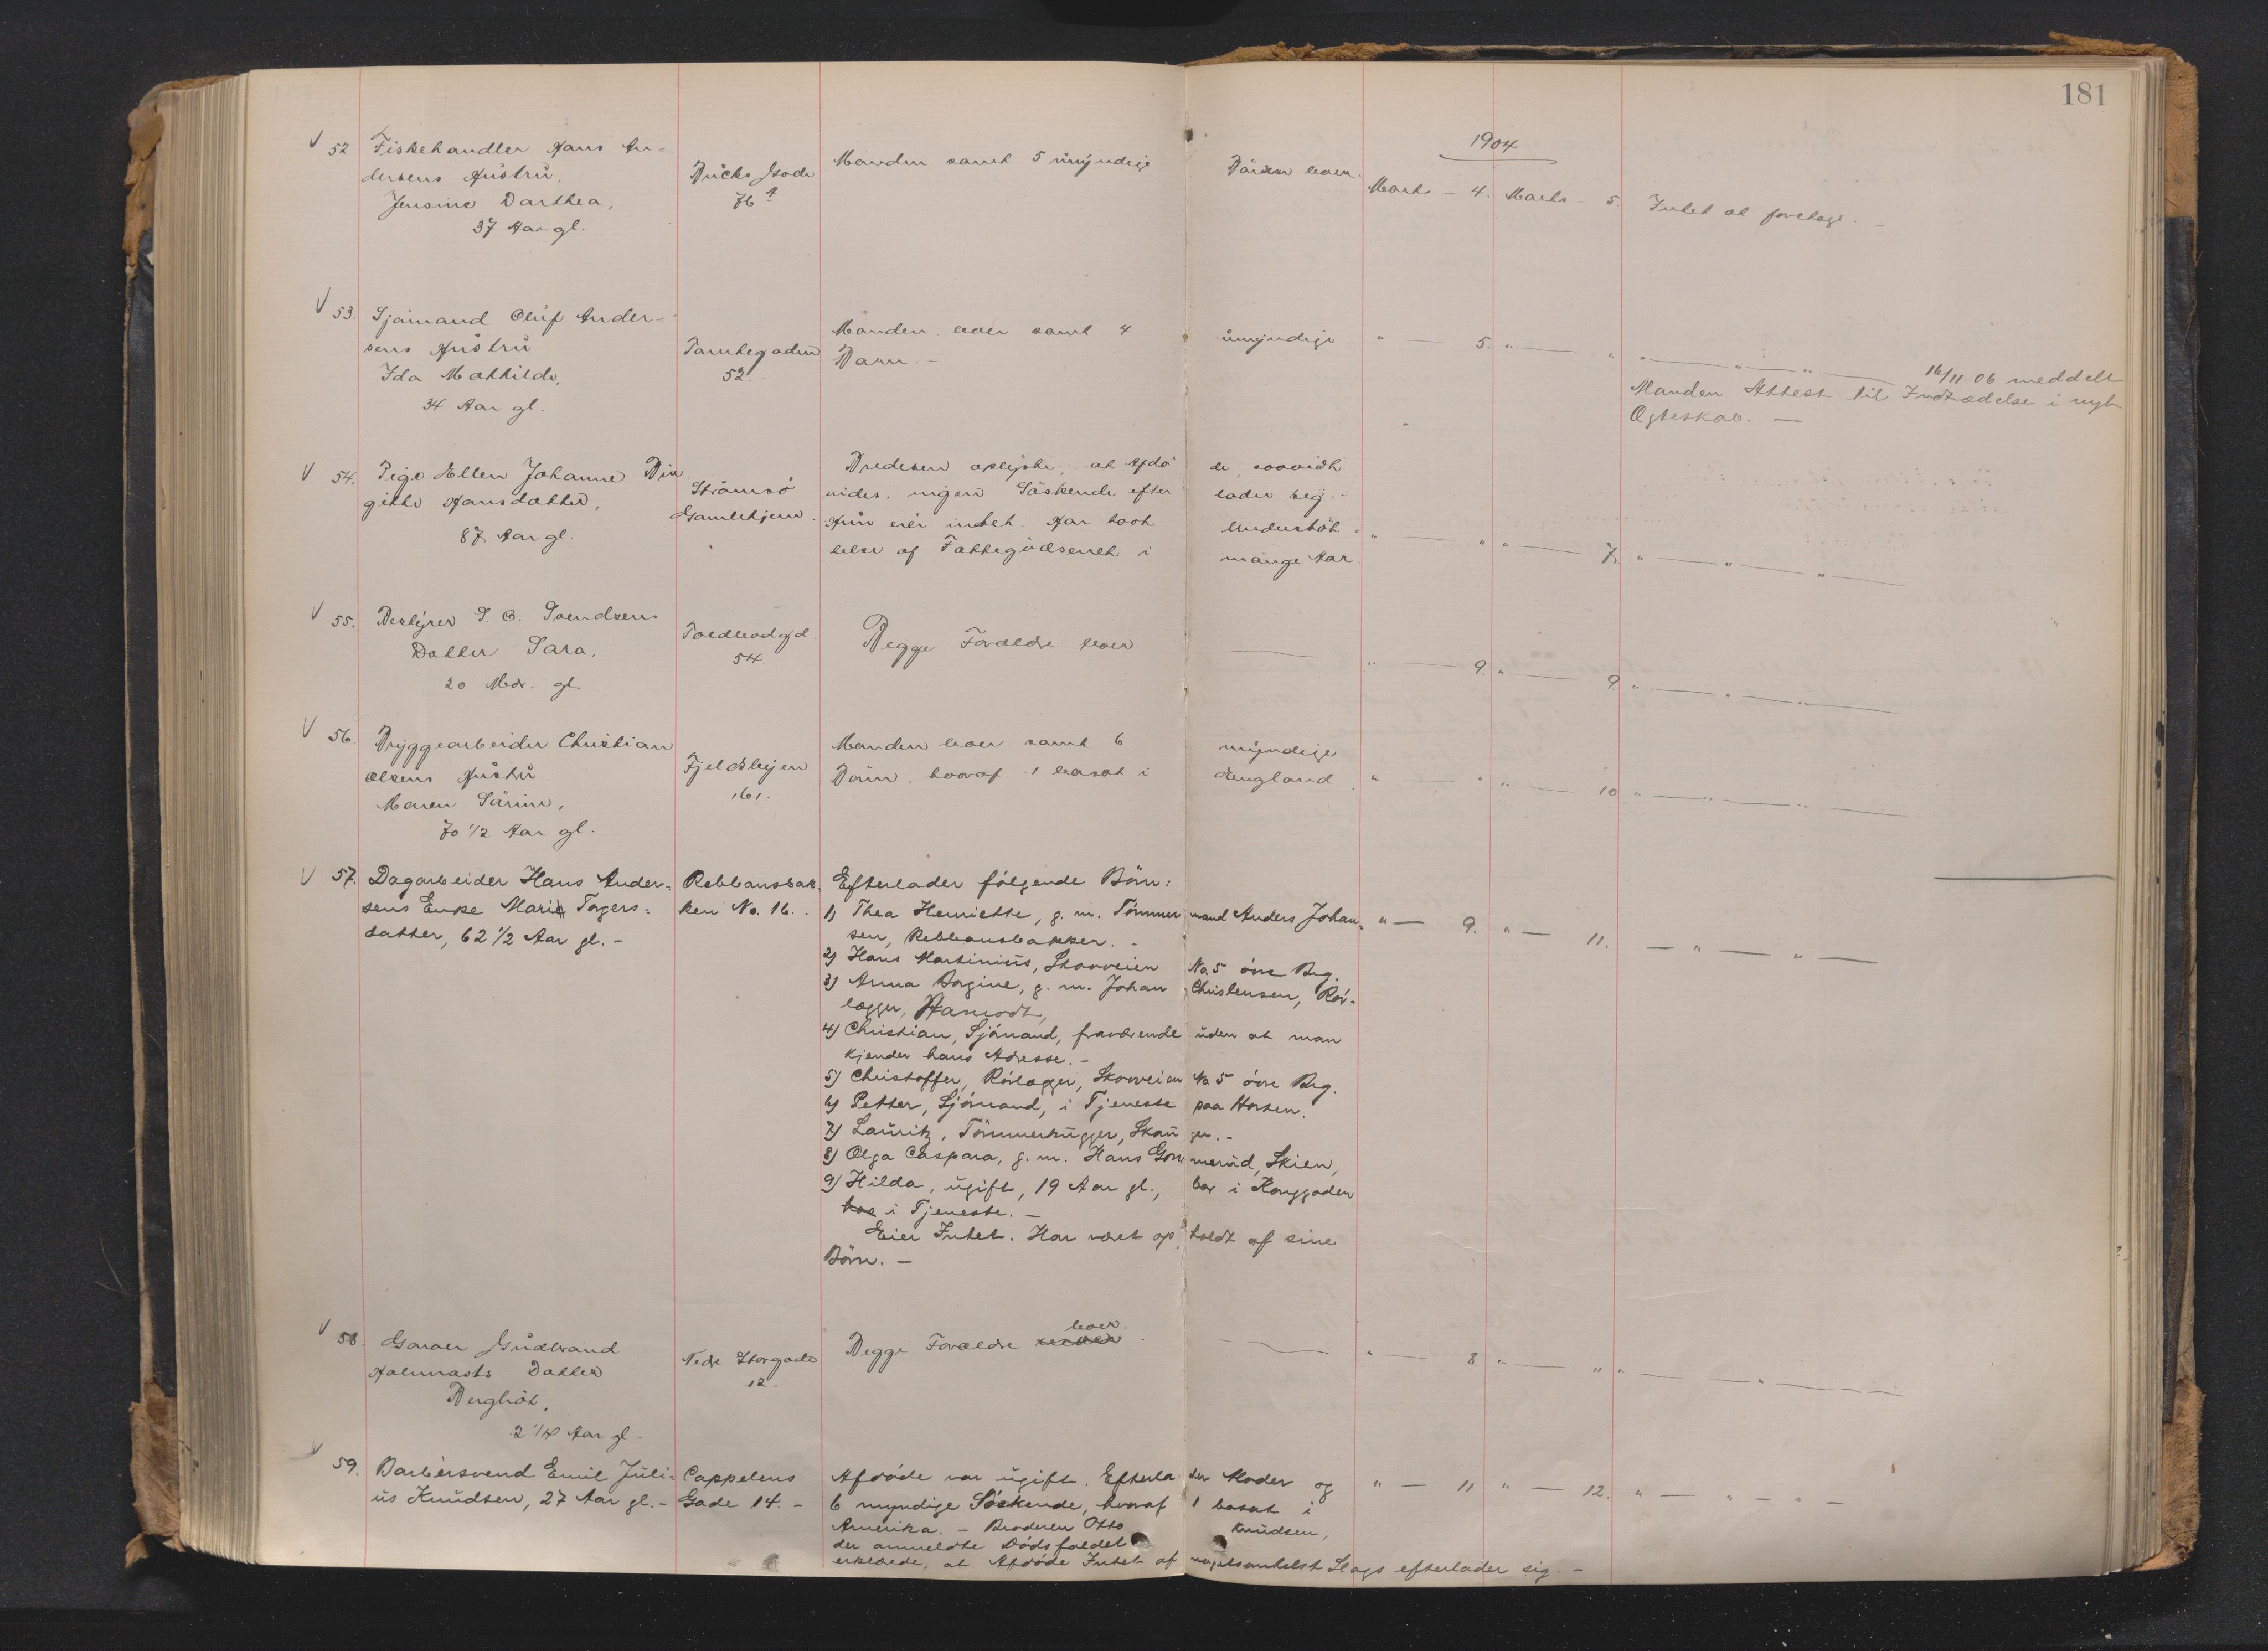 181
1904
V 52 Fiskehandler Hans An-
dersens Hustru,
Jensine Dorthea,
37 Aar gl.
Bücks Gade
76 A
Manden samt 5 umyndige Börn lever.
Marts - 4. Marts - 5. Intet at foretage. -
V 53. Sjömand Oluf Ander-
sens Hustru
Ida Mathilde,
34 Aar gl.
Tomtegaden
52. -
Manden lever samt 4 umyndige
Barn. -
" — 5. " — " " — " — " — 16/11 06 meddelt
Manden Attest til Indtrædelse i nyt
Ægteskab. —
V 54. Pige Ellen Johanne Bir
gitte Hansdatter,
87 Aar gl.
Strömsö
Gamlehjem.
Bredesen oplyste, at Afdöde, saavidt
vides, ingen Söskende efterlader sig. -
Hun eier intet. Har havt Understöt-
telse af Fattigvæsenet i mange Aar.
" — " " — 7. " — " — " —
V 55. Bestyrer S. O. Svendsens
Datter Sara,
20 Mdr. gl.
Toldbodgd.
54.
Begge Forældre lever —
" — 9. " — 9. " — " — " —
V 56. Bryggearbeider Christian
Olsens Hustru
Maren Sörine,
70 1/2 Aar gl.
Fjeldsbyen
161.
Manden lever samt 6 myndige
Börn, hvoraf 1 bosat i England.
" — " " — 10 " — " — " —
V 57. Dagarbeider Hans Ander-
sens Enke Marie Torgers-
datter, 62 1/2 Aar gl. -
Rebbansbak-
ken No. 16. .
Efterlader fölgende Börn:
1) Thea Henriette, g. m. Tömmermand Anders Johan-
sen, Rebbansbakken. -
" — 9. " — 11. — " — " —
2) Hans Martinius, Skovveien No. 5 övre Brg.
3) Anna Bagine, g. m. Johan Christensen, Rör-
lægger,
4) Christian, Sjömand, fraværende uden at man
kjender hans Adresse. -
5) Christoffer, Rörlægger, Skovveien No 5 övre Brg.
6) Petter, Sjömand, i Tjeneste paa Horten.
7) Lauritz, Tömmerhugger, Skauger. -
8) Olga Caspara, g. m. Hans Gommerud, Skien,
9) Hilda, ugift, 19 Aar gl., bor i Konggaden
hos i Tjeneste. -
Eier Intet. Har været opholdt af sine
Börn. -
V 58. Garver Gudbrand
Holmrasts Datter
Bergliot,
2 1/4 Aar gl.
Nedre Storgade
12.
Begge Forældre lever. —
" — 8. " — " " — " —
V 59. Barbersvend Emil Juli-
us Knudsen, 27 Aar gl. -
Cappelens
Gade 14. -
Afdöde var ugift. Efterlader Moder og
6 myndige Söskende, hvoraf 1 bosat i
Amerika. - Broderen Otto Knudsen,
der anmeldte Dödsfaldet
erklærede, at Afdöde Intet af nogetsomhelst Slags efterlader sig. -
" — 11 " — 12. " — " — " —